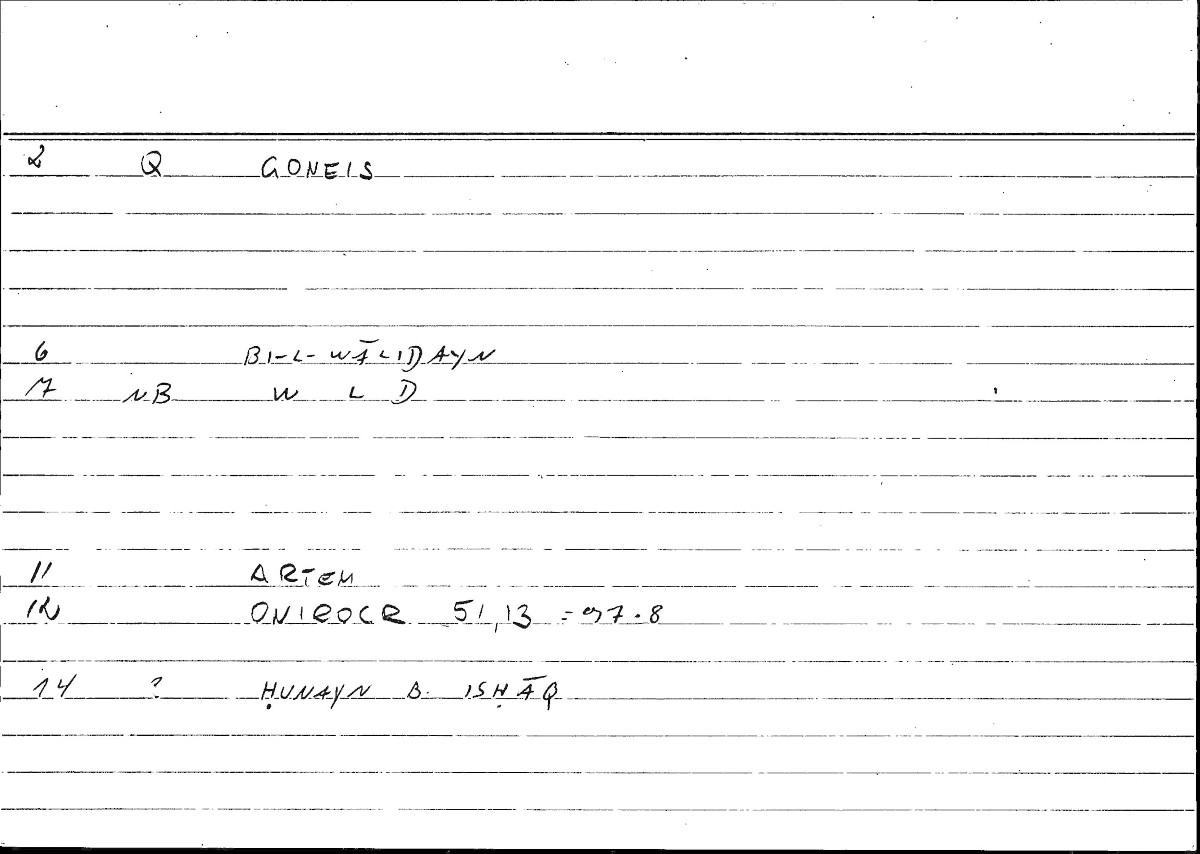 2 Q GONEIS
6 BI-L-WĀLIDAYN
7 NB W L D
11 ARTEM
12 ONIROCR 51,13 = 97.8
14 ? ḤUNAYN B. ISḤĀQ